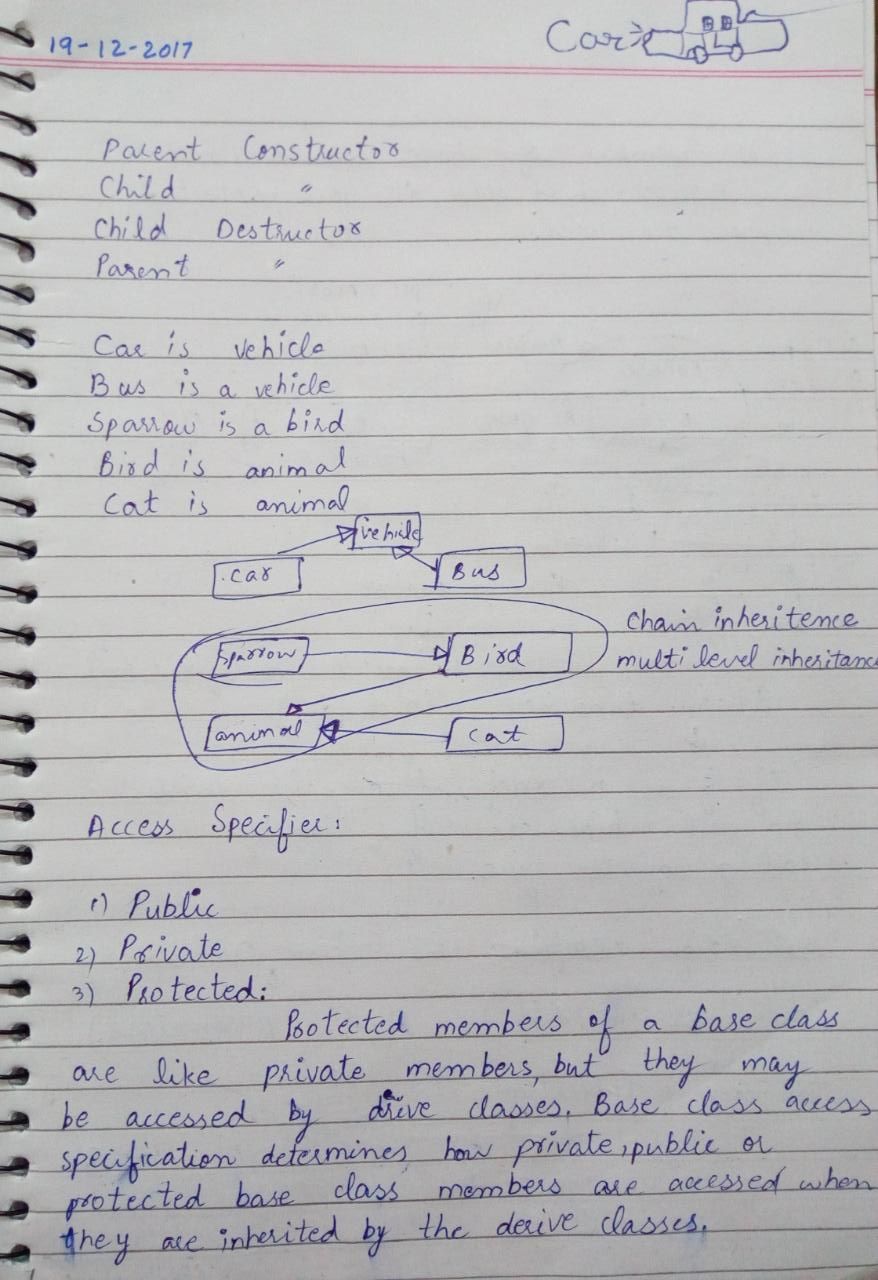 19-12-2017
Car
Parent Constructor
Child "
Child Destructor
Parent "
Car is vehicle
Bus is a vehicle
Sparrow is a bird
Bird is animal
Cat is animal
vehicle
Car
Bus
Chain inheritence
Sparrow
Bird
multi level inheritance
animal
Cat
Access Specifier:
1) Public
2) Private
3) Protected:
Protected members of a base class
are like private members, but they may
be accessed by drive classes. Base class access
specification determines how private, public or
protected base class members are accessed when
they are inherited by the derive classes.